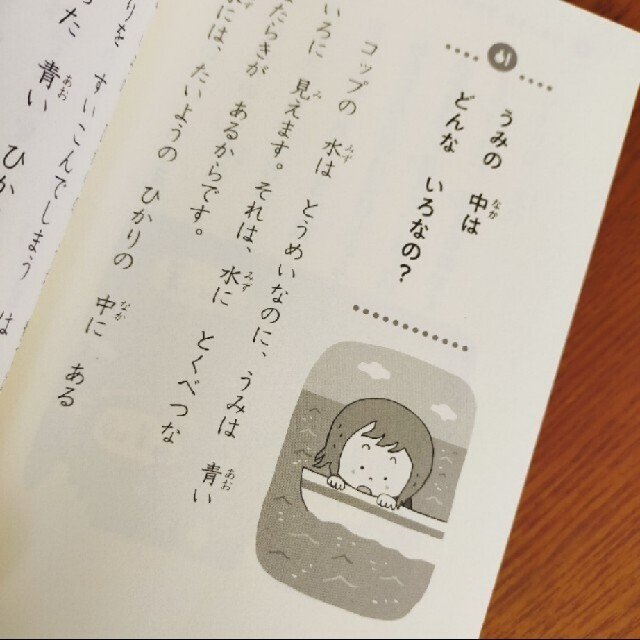 うみの 中は
どんな いろなの？
コップの 水は とうめいなのに、うみは 青い
いろに 見えます。それは、水に とくべつな
たらきが あるからです。
には、たいようの ひかりの 中に ある
りを すいこんでしまう は
った 青い ひか